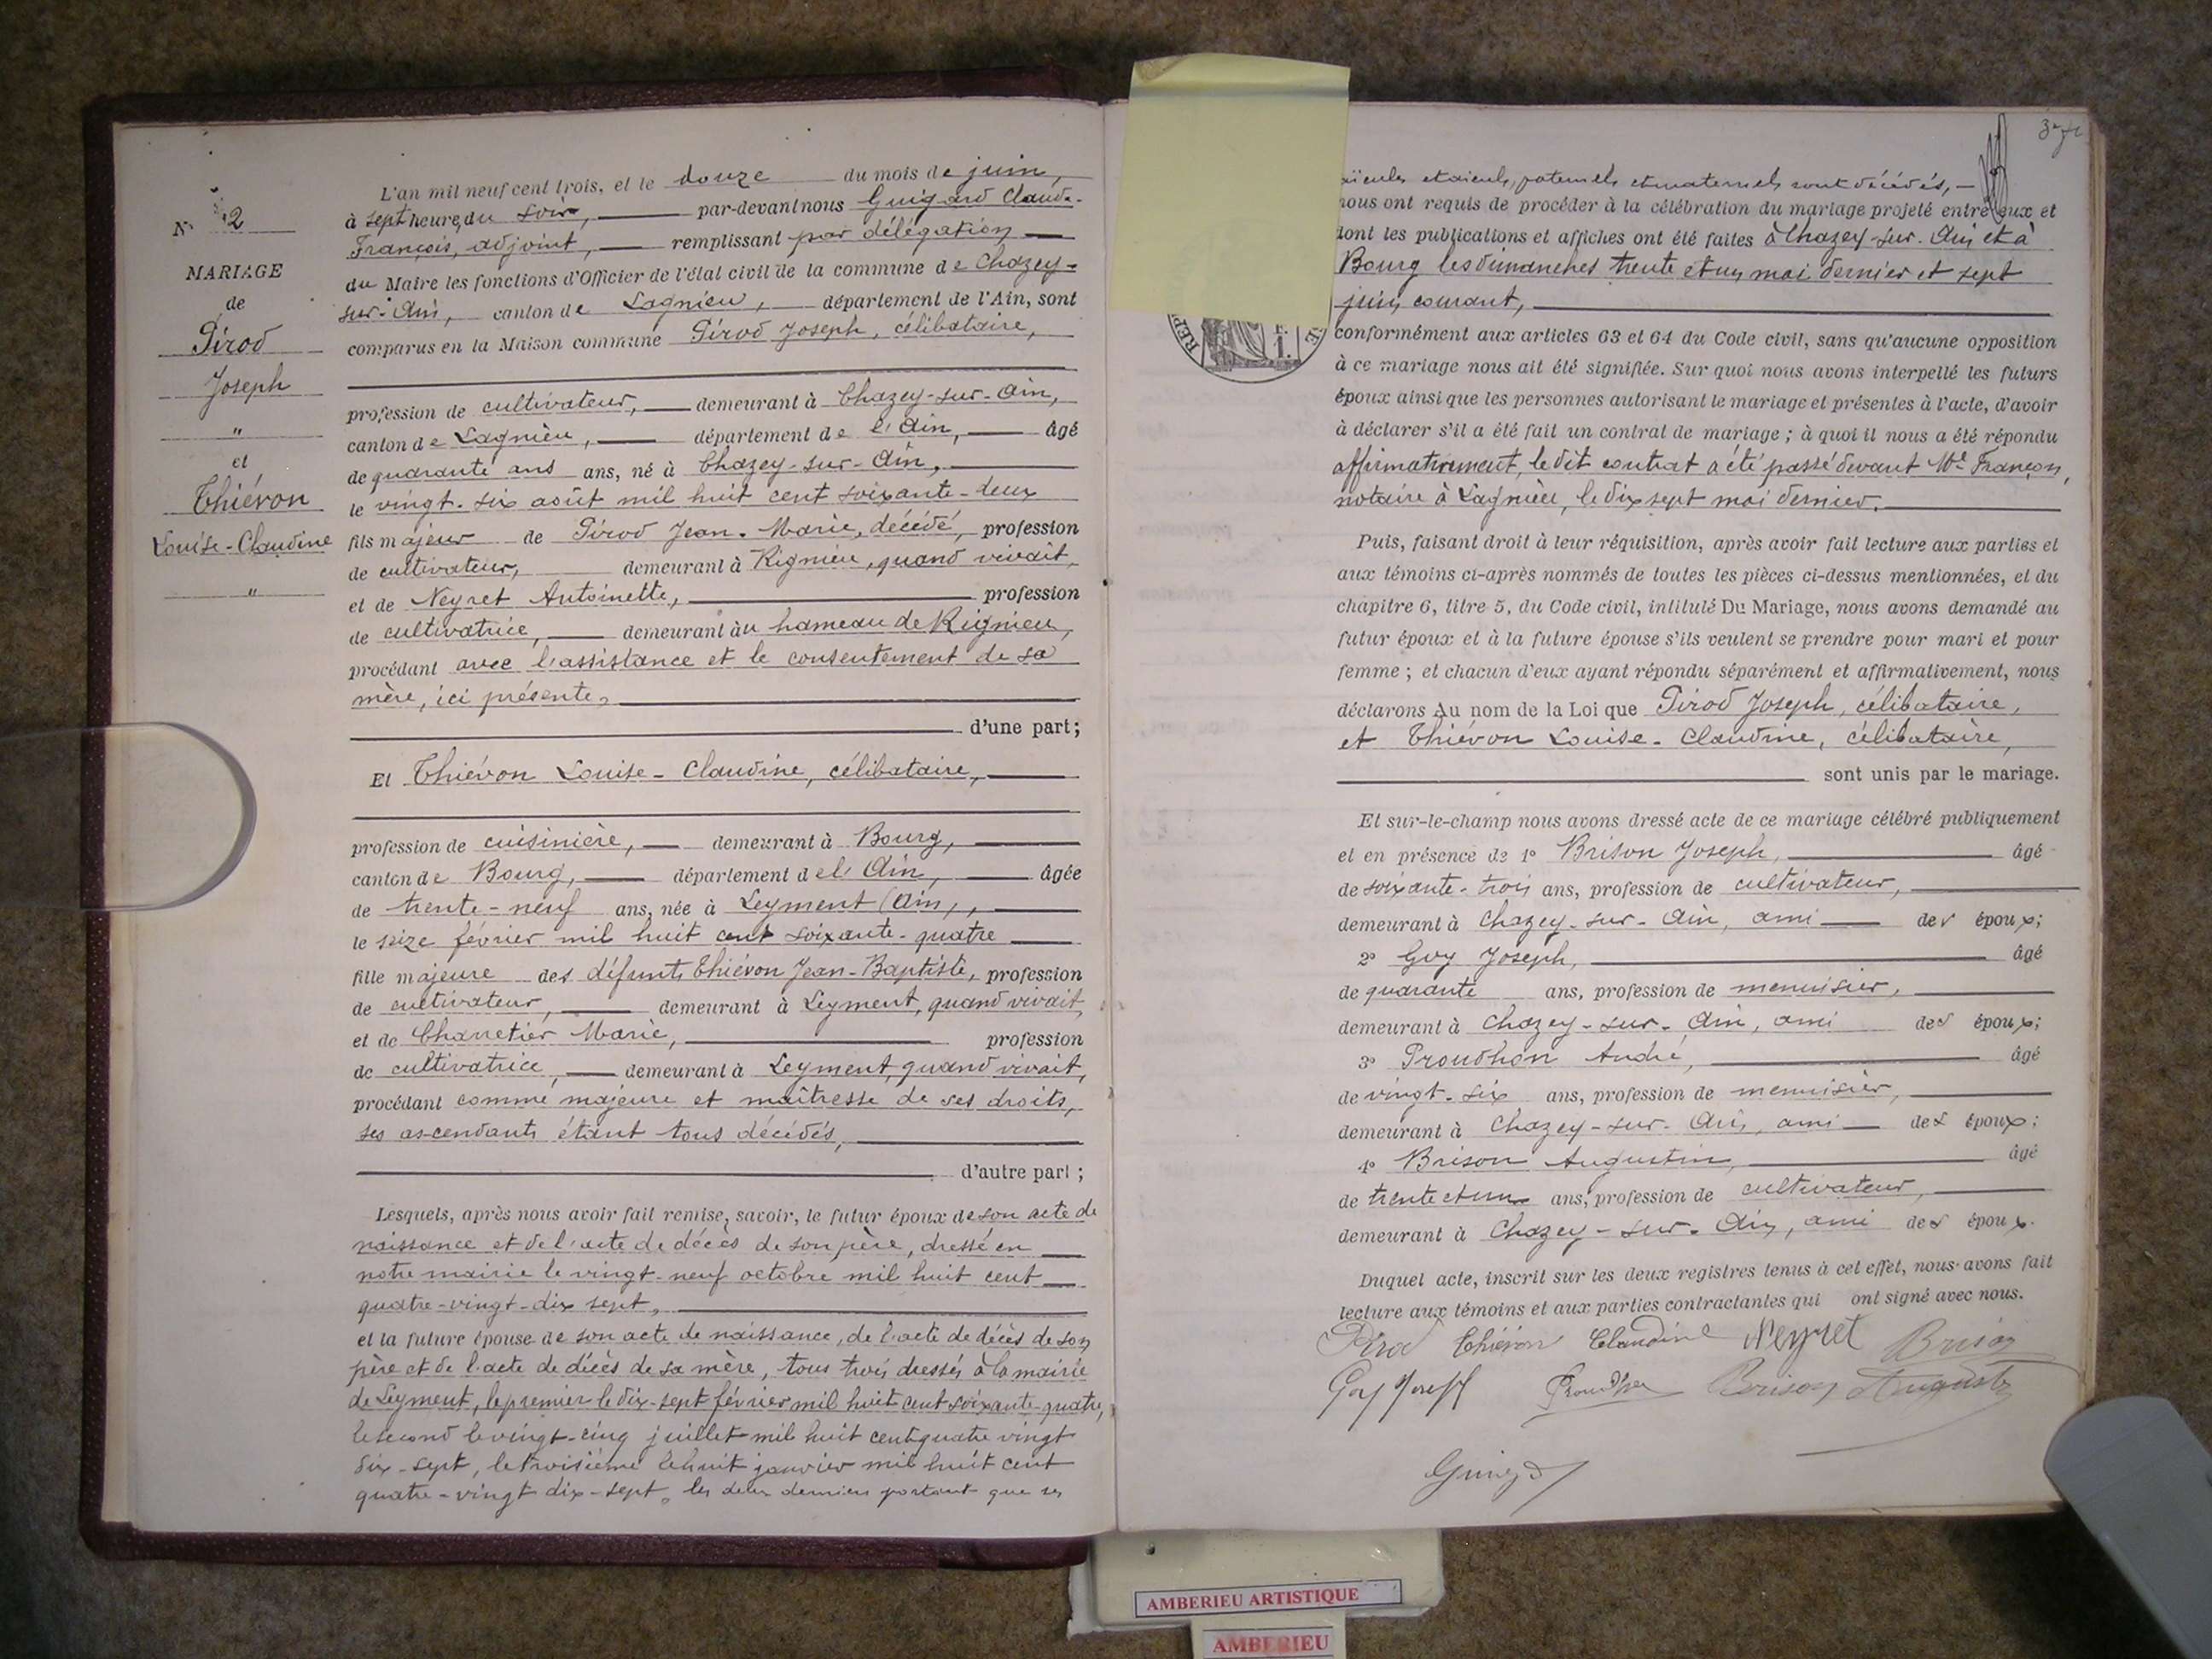 N° 2
MARIAGE
de
Pérod
Joseph
"
et
Thiévon
Louise-Claudine
"
L'an mil neuf cent trois, et le douze du mois de juin,
à sept heures du soir, par-devant nous Guigard Claude-
François, adjoint, remplissant par délégation
du Maire les fonctions d'Officier de l'état civil de la commune de Chazey-
sur-Ain, canton de Lagnieu, département de l'Ain, sont
comparus en la Maison commune Pérod Joseph, célibataire,
profession de cultivateur, demeurant à Chazey-sur-Ain,
canton de Lagnieu, département de l'Ain, âgé
de quarante ans ans, né à Chazey-sur-Ain,
le vingt-six août mil huit cent soixante-deux
fils majeur de Pérod Jean-Marie, décédé, profession
de cultivateur, demeurant à Rignieu, quand vivait,
et de Neyret Antoinette, profession
de cultivatrice, demeurant au hameau de Rignieu,
procédant avec l'assistance et le consentement de sa
mère, ici présente,
d'une part;
Et Thiévon Louise-Claudine, célibataire,
profession de cuisinière, demeurant à Bourg,
canton de Bourg, département de l'Ain, âgée
de trente-neuf ans, née à Leyment (Ain),
le seize février mil huit cent soixante-quatre
fille majeure des défunts Thiévon Jean-Baptiste, profession
de cultivateur, demeurant à Leyment, quand vivait,
et de Charretier Marie, profession
de cultivatrice, demeurant à Leyment, quand vivait,
procédant comme majeure et maîtresse de ses droits,
ses ascendants étant tous décédés,
d'autre part;
Lesquels, après nous avoir fait remise, savoir, le futur époux de son acte de
naissance et de l'acte de décès de son père, dressé en
notre mairie le vingt-neuf octobre mil huit cent
quatre-vingt-dix sept,
et la future épouse de son acte de naissance, de l'acte de décès de son
père et de l'acte de décès de sa mère, tous trois dressés à la mairie
de Leyment, le premier le dix-sept février mil huit cent soixante-quatre,
le second le vingt-cinq juillet mil huit cent quatre vingt
dix-sept, le troisième le huit janvier mil huit cent
quatre-vingt dix-sept, les deux derniers portant que ses
aïeules et aieuls, paternels et maternels sont décédés,
nous ont requis de procéder à la célébration du mariage projeté entre eux et
dont les publications et affiches ont été faites à Chazey-sur-Ain et à
Bourg les dimanches trente et un mai dernier et sept
juin courant,
conformément aux articles 63 et 64 du Code civil, sans qu'aucune opposition
à ce mariage nous ait été signifiée. Sur quoi nous avons interpellé les futurs
époux ainsi que les personnes autorisant le mariage et présentes à l'acte, d'avoir
à déclarer s'il a été fait un contrat de mariage; à quoi il nous a été répondu
affirmativement, le dit contrat a été passé devant Me Françon,
notaire à Lagnieu, le dix sept mai dernier.
Puis, faisant droit à leur réquisition, après avoir fait lecture aux parties et
aux témoins ci-après nommés de toutes les pièces ci-dessus mentionnées, et du
chapitre 6, titre 5, du Code civil, intitulé Du Mariage, nous avons demandé au
futur époux et à la future épouse s'ils veulent se prendre pour mari et pour
femme; et chacun d'eux ayant répondu séparément et affirmativement, nous
déclarons Au nom de la Loi que Pérod Joseph, célibataire,
et Thiévon Louise-Claudine, célibataire,
sont unis par le mariage.
Et sur-le-champ nous avons dressé acte de ce mariage célébré publiquement
et en présence de 1° Brison Joseph, âgé
de soixante-trois ans, profession de cultivateur,
demeurant à Chazey-sur-Ain, ami des époux;
2° Goy Joseph, âgé
de quarante ans, profession de menuisier,
demeurant à Chazey-sur-Ain, ami des époux;
3° Proudhon André, âgé
de vingt-six ans, profession de menuisier,
demeurant à Chazey-sur-Ain, ami des époux;
4° Brison Augustin, âgé
de trente et un ans, profession de cultivateur,
demeurant à Chazey-sur-Ain, ami des époux.
Duquel acte, inscrit sur les deux registres tenus à cet effet, nous avons fait
lecture aux témoins et aux parties contractantes qui ont signé avec nous.
Pérod Thiévon Claudine Neyret Brison
Goy Joseph Proudhon Brison Augustin
Guigard
AMBERIEU ARTISTIQUE
AMBERIEU